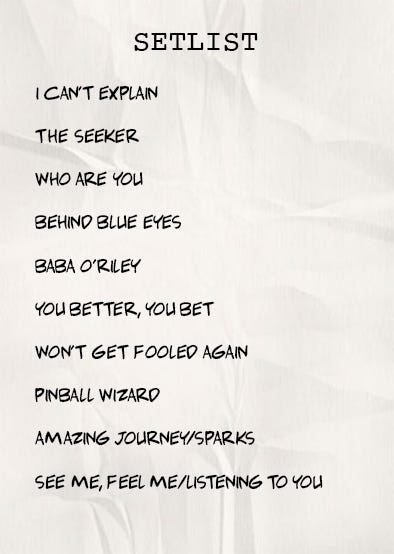 SETLIST
I CAN'T EXPLAIN
THE SEEKER
WHO ARE YOU
BEHIND BLUE EYES
BABA O'RILEY
YOU BETTER, YOU BET
WON'T GET FOOLED AGAIN
PINBALL WIZARD
AMAZING JOURNEY/SPARKS
SEE ME, FEEL ME/LISTENING TO YOU